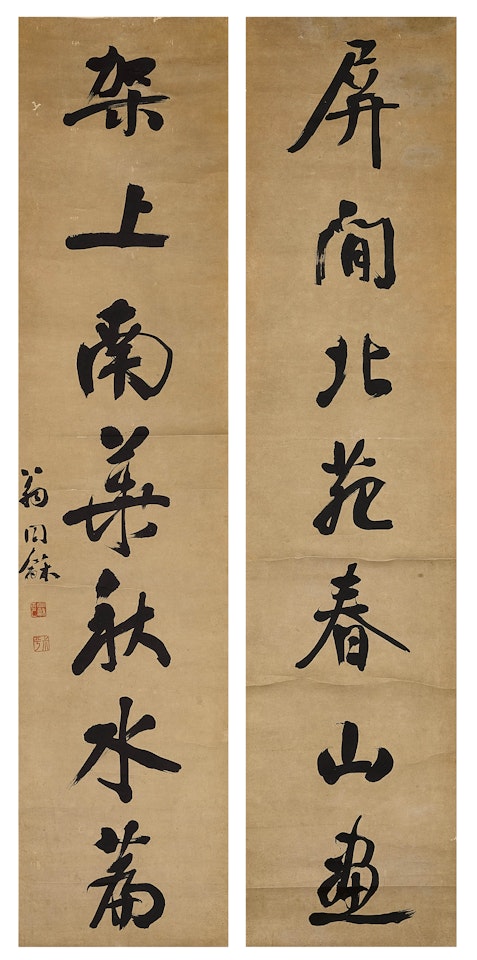 屏間北苑春山畫
架上南華秋水篇
翁同龢